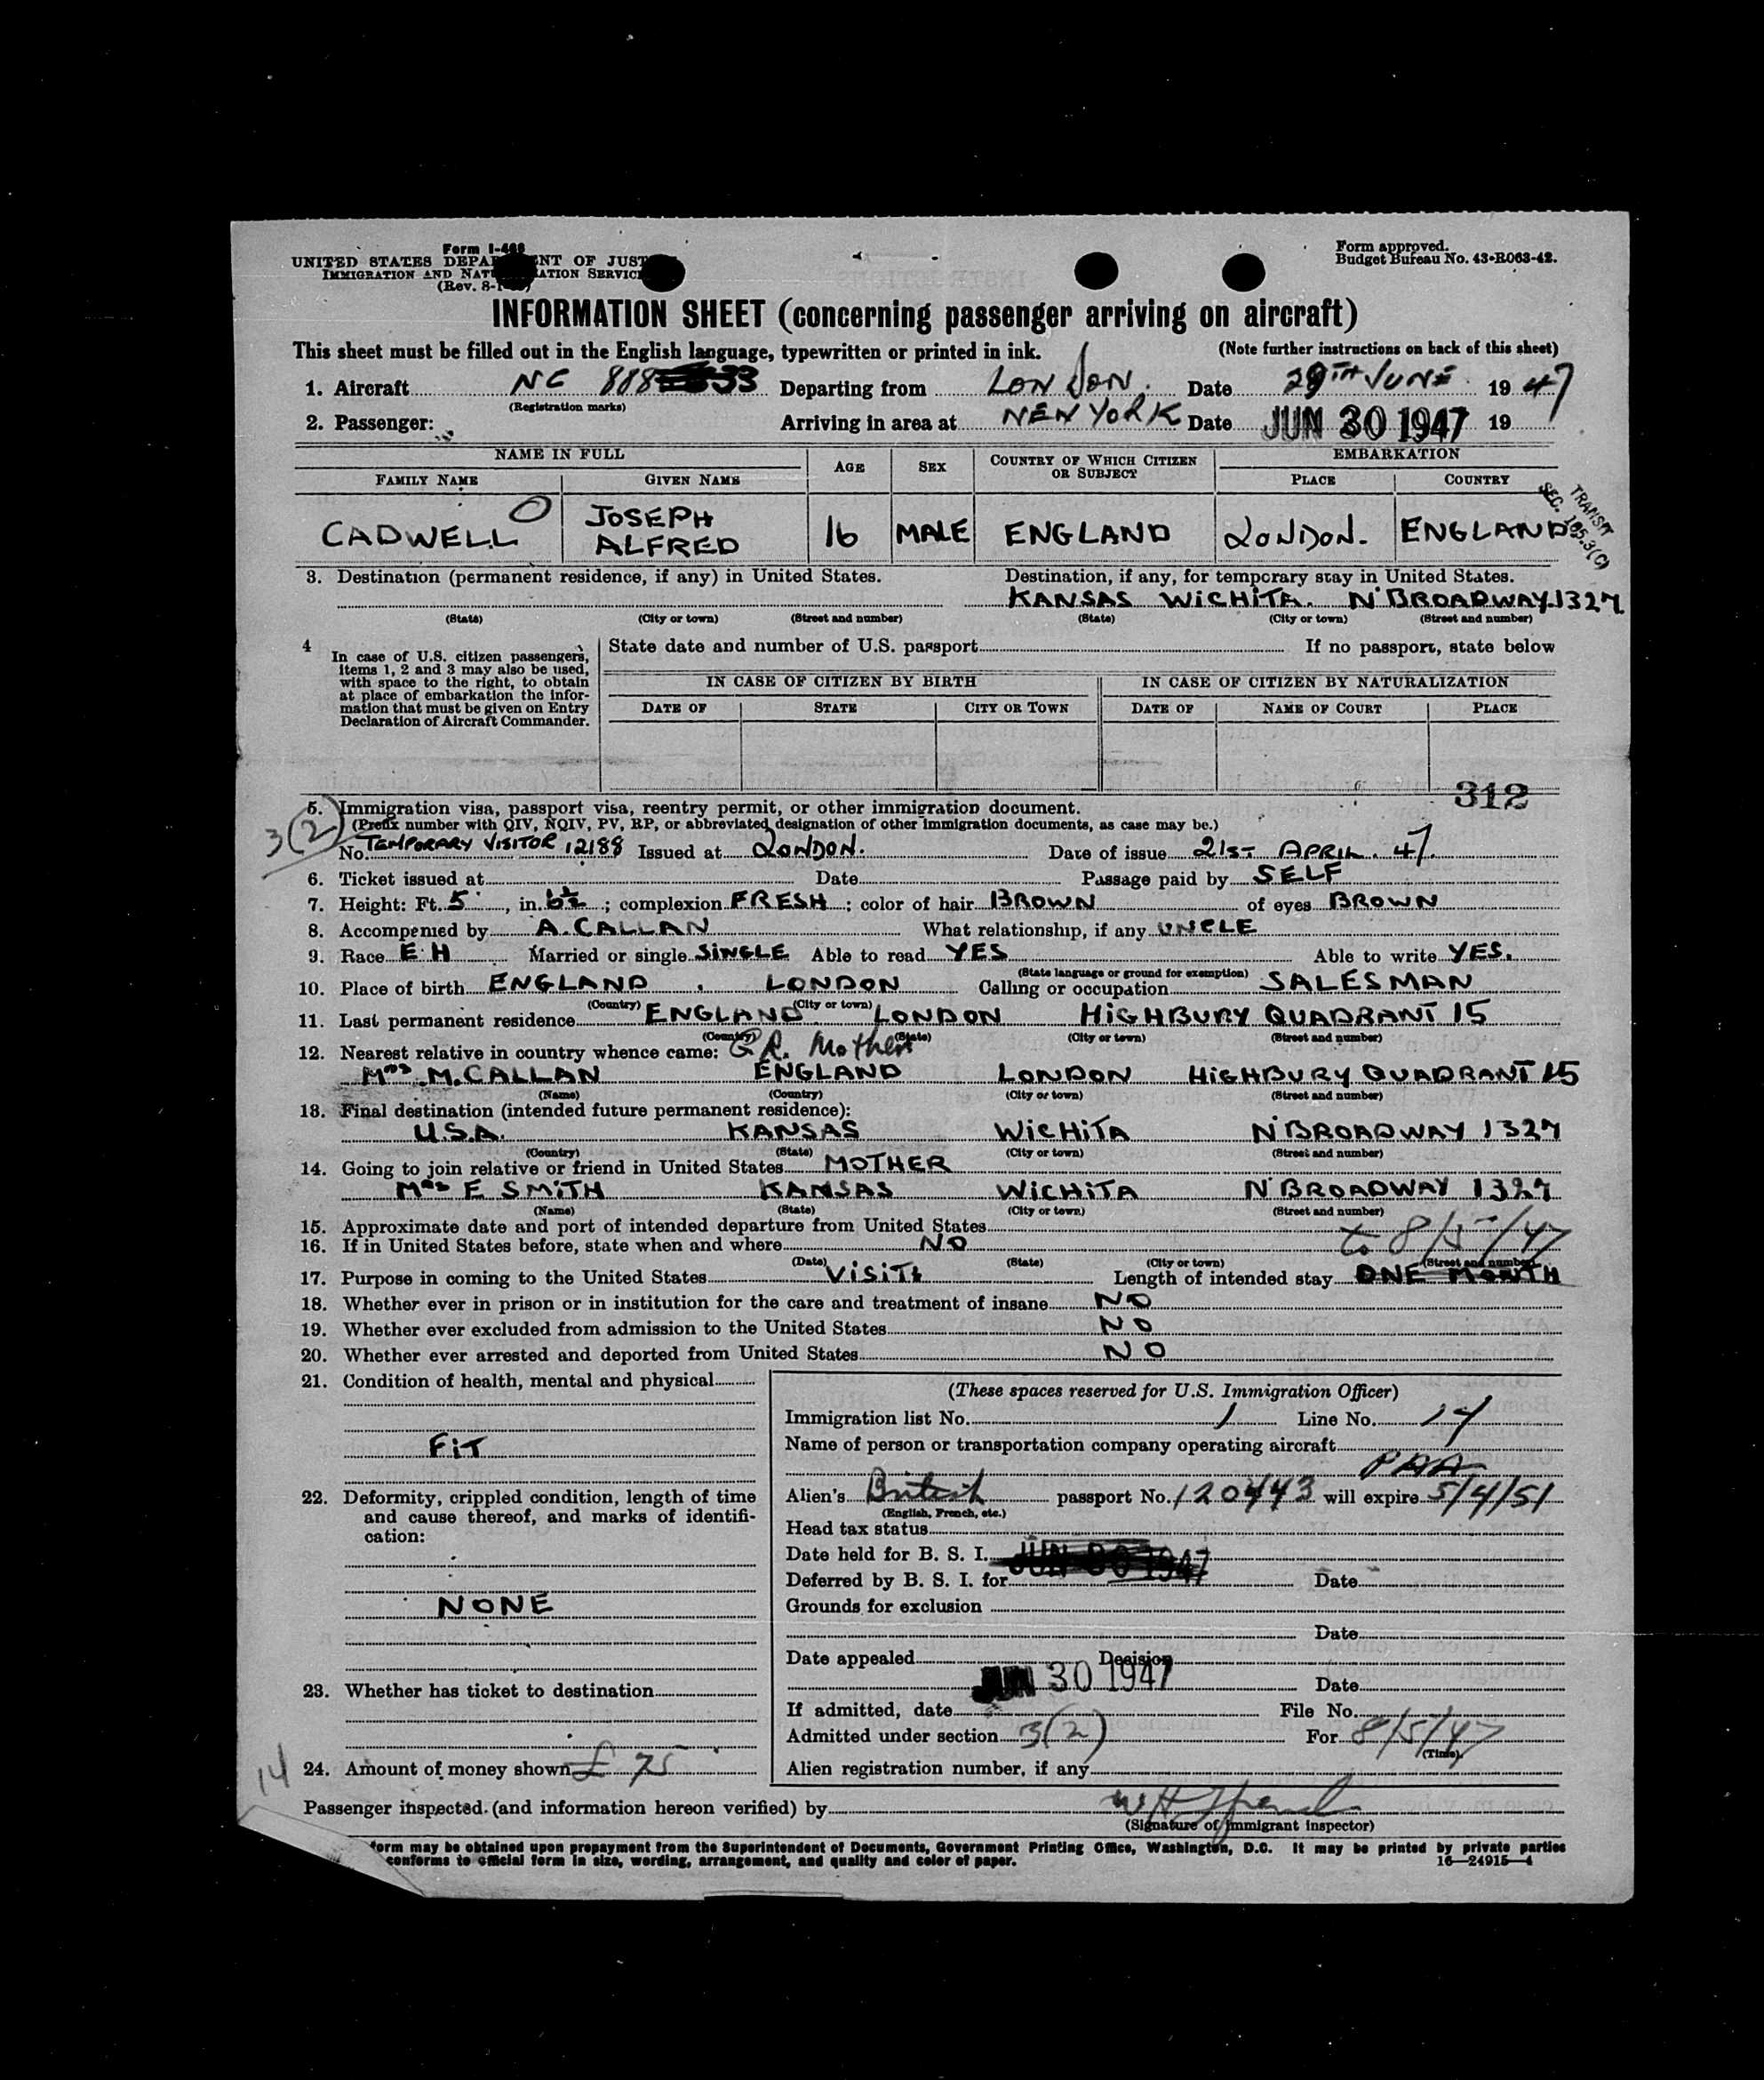 Form I-466
UNITED STATES DEPA NT OF JUST
IMMIGRATION AND NAT ATION SERVIC
(Rev. 8-1
Form approved.
Budget Bureau No. 43-R063-42.
INFORMATION SHEET (concerning passenger arriving on aircraft)
This sheet must be filled out in the English language, typewritten or printed in ink. (Note further instructions on back of this sheet)
1. Aircraft NC 888 33 Departing from LONDON. Date 29TH JUNE 1947
(Registration marks)
2. Passenger: Arriving in area at NEW YORK Date JUN 30 1947 19
NAME IN FULL AGE SEX COUNTRY OF WHICH CITIZEN OR SUBJECT EMBARKATION
FAMILY NAME GIVEN NAME PLACE COUNTRY
CADWELL JOSEPH ALFRED 16 MALE ENGLAND LONDON. ENGLAND
TRANSIT
SEC. 195.3(C)
3. Destination (permanent residence, if any) in United States. Destination, if any, for temporary stay in United States.
KANSAS WICHITA. N'BROADWAY.1327
(State) (City or town) (Street and number) (State) (City or town) (Street and number)
4 In case of U.S. citizen passengers, items 1, 2 and 3 may also be used, with space to the right, to obtain at place of embarkation the information that must be given on Entry Declaration of Aircraft Commander.
State date and number of U.S. passport If no passport, state below
IN CASE OF CITIZEN BY BIRTH IN CASE OF CITIZEN BY NATURALIZATION
DATE OF STATE CITY OR TOWN DATE OF NAME OF COURT PLACE
312
5. Immigration visa, passport visa, reentry permit, or other immigration document.
3(2) (Prefix number with QIV, NQIV, PV, RP, or abbreviated designation of other immigration documents, as case may be.)
No. TEMPORARY VISITOR 12188 Issued at LONDON. Date of issue 21ST APRIL. 47.
6. Ticket issued at Date Passage paid by SELF
7. Height: Ft. 5, in. 6½; complexion FRESH; color of hair BROWN of eyes BROWN
8. Accompanied by A. CALLAN What relationship, if any UNCLE
9. Race E H Married or single SINGLE Able to read YES Able to write YES.
(State language or ground for exemption)
10. Place of birth ENGLAND. LONDON Calling or occupation SALESMAN
(Country) (City or town)
11. Last permanent residence ENGLAND LONDON HIGHBURY QUADRANT 15
(Country) (State) (City or town) (Street and number)
12. Nearest relative in country whence came: G R. Mother
Mrs M. CALLAN ENGLAND LONDON HIGHBURY QUADRANT 15
(Name) (Country) (City or town) (Street and number)
13. Final destination (intended future permanent residence):
U.S.A. KANSAS WICHITA N'BROADWAY 1327
(Country) (State) (City or town) (Street and number)
14. Going to join relative or friend in United States MOTHER
Mrs E SMITH KANSAS WICHITA N'BROADWAY 1327
(Name) (State) (City or town) (Street and number)
15. Approximate date and port of intended departure from United States
16. If in United States before, state when and where NO to 8/5/47
(Date) (State) (City or town) (Street and number)
17. Purpose in coming to the United States VISIT Length of intended stay ONE MONTH
18. Whether ever in prison or in institution for the care and treatment of insane NO
19. Whether ever excluded from admission to the United States NO
20. Whether ever arrested and deported from United States NO
21. Condition of health, mental and physical
FIT
22. Deformity, crippled condition, length of time and cause thereof, and marks of identification:
NONE
23. Whether has ticket to destination
14 24. Amount of money shown £ 75
(These spaces reserved for U.S. Immigration Officer)
Immigration list No. 1 Line No. 14
Name of person or transportation company operating aircraft
PAA
Alien's British passport No. 120443 will expire 5/4/51
(English, French, etc.)
Head tax status
Date held for B. S. I. JUN 30 1947
Deferred by B. S. I. for Date
Grounds for exclusion
Date
Date appealed Decision
JUN 30 1947 Date
If admitted, date File No.
Admitted under section 3(2) For 8/5/47
(Time)
Alien registration number, if any
Passenger inspected (and information hereon verified) by
(Signature of immigrant inspector)
form may be obtained upon prepayment from the Superintendent of Documents, Government Printing Office, Washington, D.C. It may be printed by private parties
conforms to official form in size, wording, arrangement, and quality and color of paper. 16—24915-4